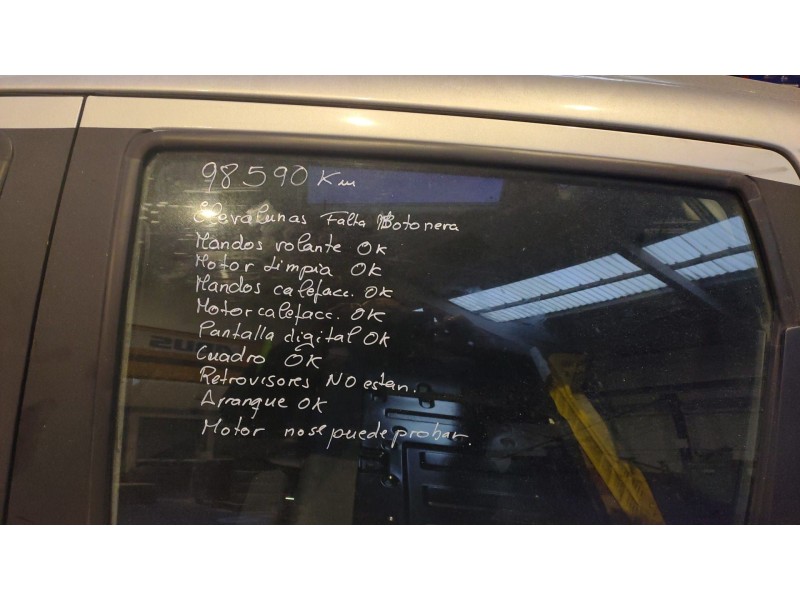 98590 Km
Elevalunas Falta Botonera
Mandos volante OK
Motor Limpia OK
Mandos calefacc. OK
Motor calefacc. OK
Pantalla digital OK
Cuadro OK
Retrovisores NO estan.
Arranque OK
Motor no se puede probar.